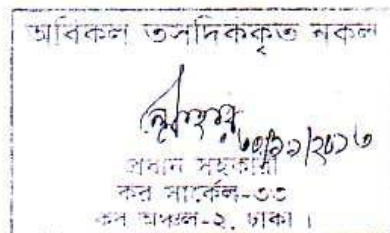 অবিকল তসদিককৃত নকল
প্রধান সহকারী
কর সার্কেল-৩৩
কর অঞ্চল-২, ঢাকা ।